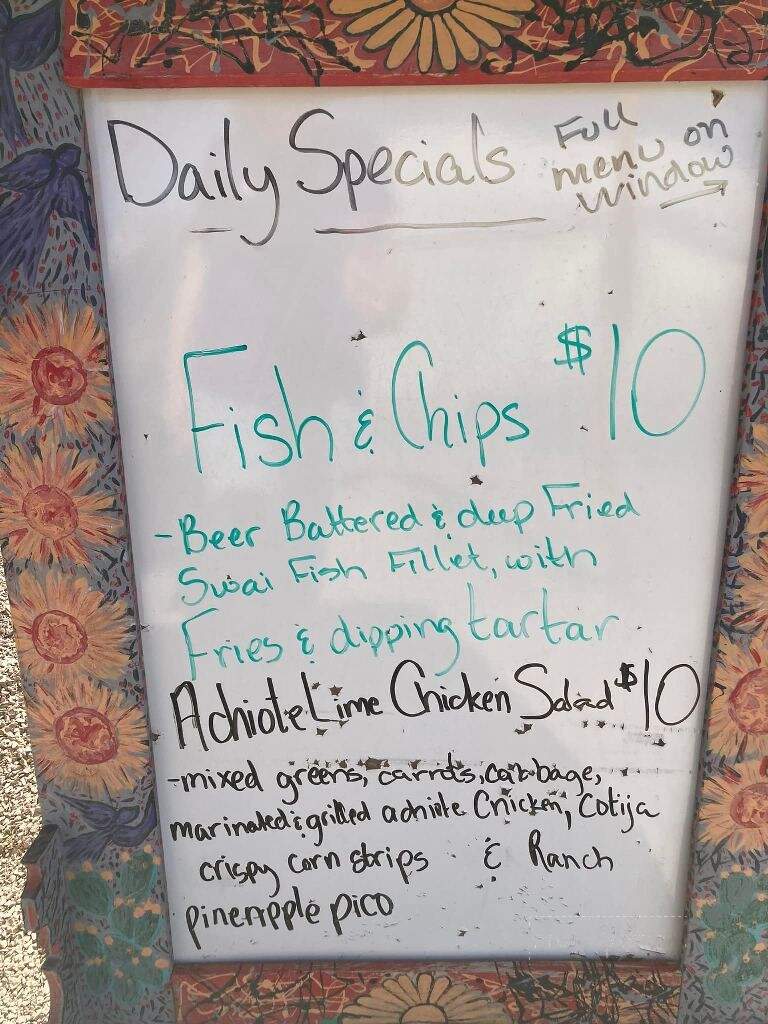 Daily Specials
Full
menu on
window →
Fish & Chips $10
- Beer Battered & deep Fried
Swai Fish Fillet, with
Fries & dipping tartar
Achiote Lime Chicken Salad $10
- mixed greens, carrots, cabbage,
marinated & grilled achiote Chicken, Cotija
crispy corn strips & Ranch
pineapple pico